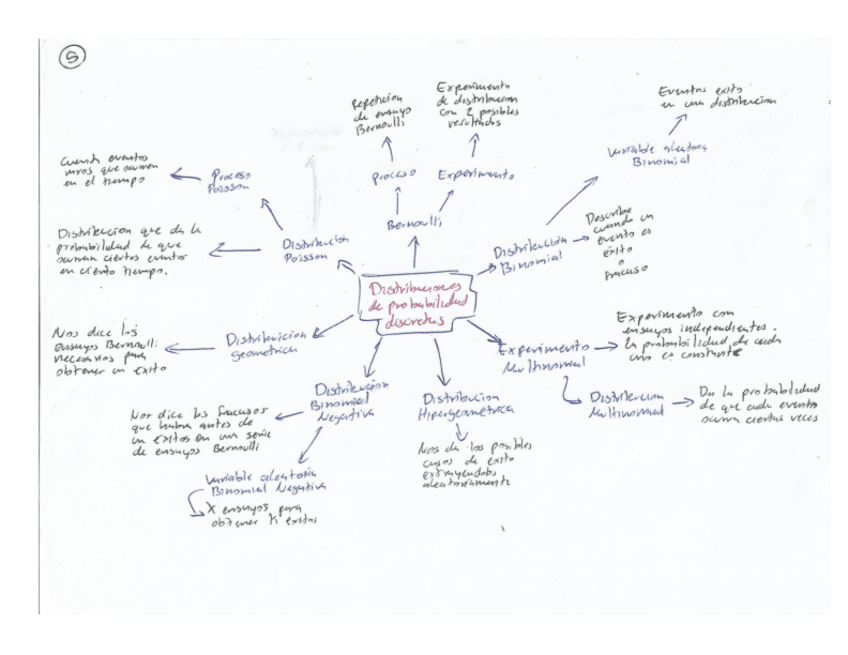 5
Distribuciones
de probabilidad
discretas
Bernoulli
Proceso
Repeticion
de ensayo
Bernoulli
Experimento
Experimento
de distribucion
con 2 posibles
resultados
Distribución
Binomial
Variable aleatoria
Binomial
Eventos exito
en una distribucion
Describe
cuando un
evento es
éxito
o
fracaso
Experimento
Multinomial
Experimento con
ensayos independientes.
La probabilidad de cada
uno es constante
Distribucion
Multinomial
Da la probabilidad
de que cada evento
ocurra ciertas veces
Distribucion
Hipergeométrica
Nos da los posibles
casos de exito
extrayendolos
aleatoriamente
Distribucion
Binomial
Negativa
Nos dice los fracasos
que habra antes de
un exitos en una serie
de ensayos Bernoulli
Variable aleatoria
Binomial Negativa
X ensayos para
obtener K exitos
Distribuicion
geometrica
Nos dice los
ensayos Bernoulli
necesarios para
obtener un exito
Distribucion
Poisson
Distribucion que da la
probabilidad de que
ocurran ciertos eventos
en cierto tiempo.
Proceso
Poisson
Cuenta eventos
raros que ocurren
en el tiempo